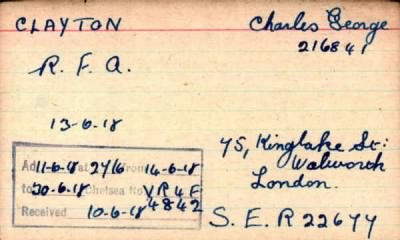 CLAYTON Charles George
216841
R. F. A.
13-6-18
75, Kinglake St:
Walworth
London.
11-6-18 27/6 from 14-6-18
to 30-6-18 Chelsea No VR4F
4842
Received 10-6-18
S. E. R 22677